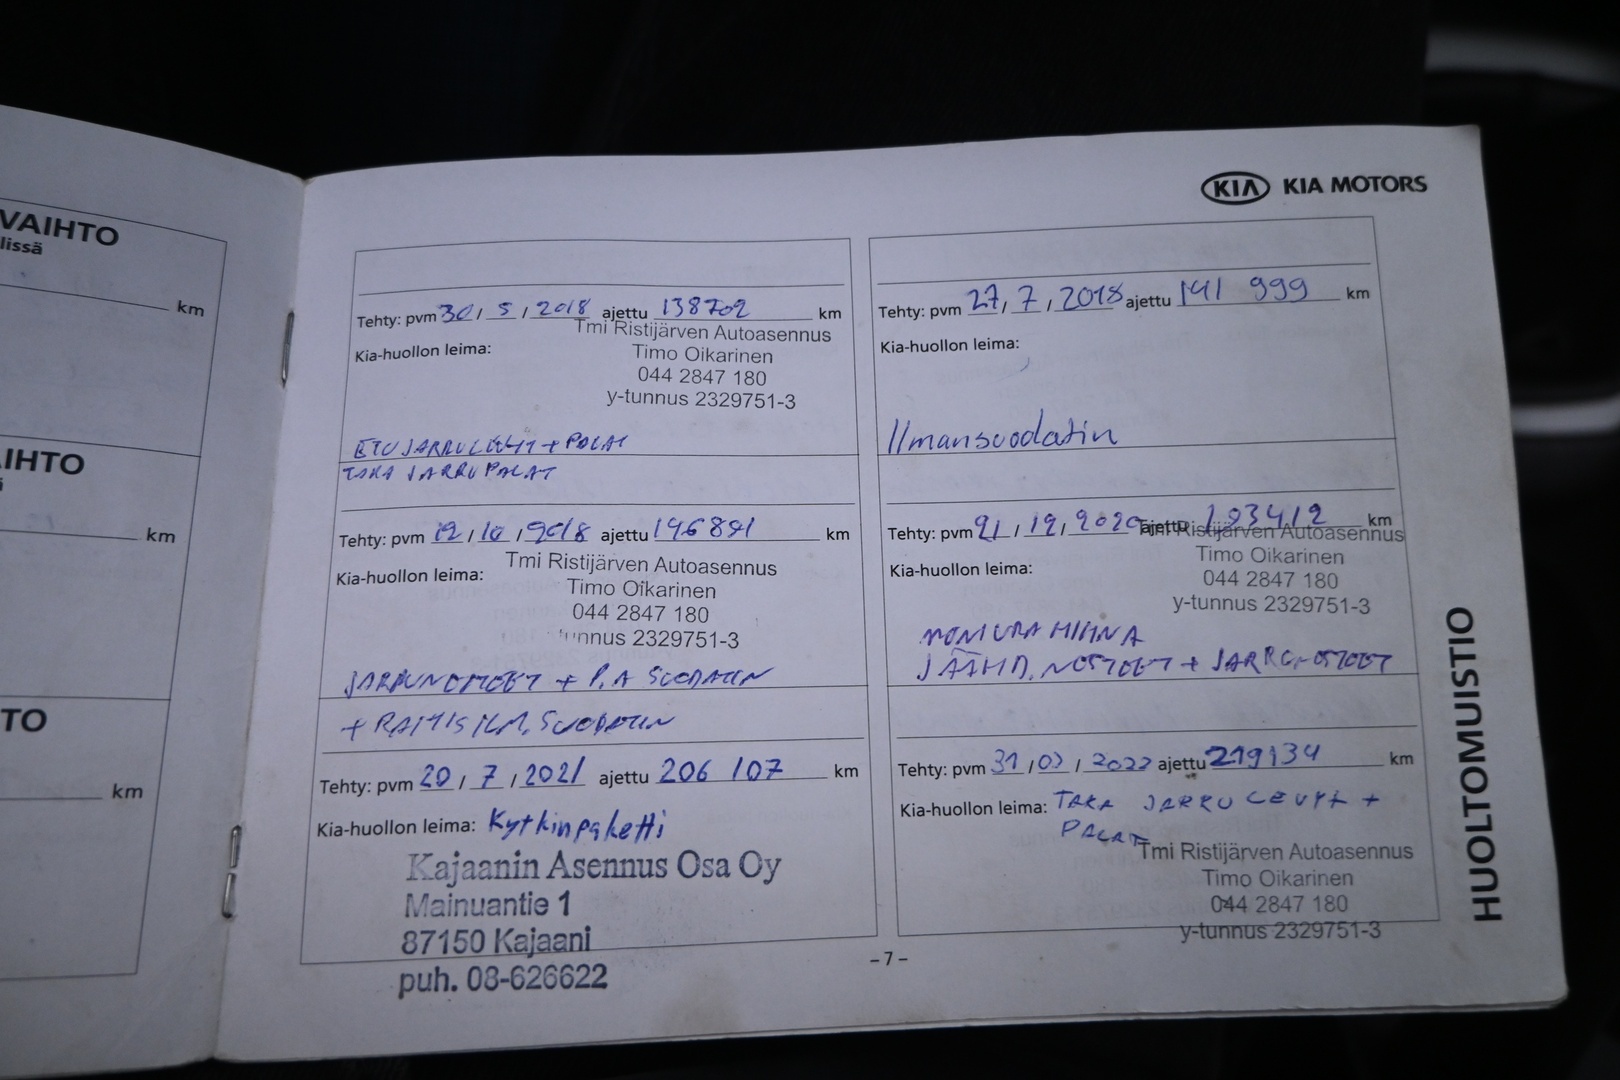 VAIHTO
lissä
km
AIHTO
km
TO
km
KIA KIA MOTORS
Tehty: pvm 30 / 5 / 2018 ajettu 138702 km
Tmi Ristijärven Autoasennus
Kia-huollon leima:
Timo Oikarinen
044 2847 180
y-tunnus 2329751-3
ETUJARRULEVYT + PALAT
TAKA JARRUPALAT
Tehty: pvm 27 / 7 / 2018 ajettu 141 999 km
Kia-huollon leima:
Ilmansuodatin
Tehty: pvm 12 / 10 / 2018 ajettu 146841 km
Tmi Ristijärven Autoasennus
Kia-huollon leima:
Timo Oikarinen
044 2847 180
tunnus 2329751-3
JARRUNESTEET + P.A SUODATIN
+ RAITIS ILM. SUODATIN
Tehty: pvm 21 / 12 / 2020 ajettu 193412 km
Tmi Ristijärven Autoasennus
Kia-huollon leima:
Timo Oikarinen
044 2847 180
y-tunnus 2329751-3
MONIURAHIHNA
JÄÄHD. NESTEET + JARRUNESTEET
Tehty: pvm 20 / 7 / 2021 ajettu 206 107 km
Kia-huollon leima: Kytkinpaketti
Kajaanin Asennus Osa Oy
Mainuantie 1
87150 Kajaani
puh. 08-626622
Tehty: pvm 31 / 03 / 2022 ajettu 219134 km
Kia-huollon leima: TAKA JARRULEVYT +
PALAT
Tmi Ristijärven Autoasennus
Timo Oikarinen
044 2847 180
y-tunnus 2329751-3
HUOLTOMUISTIO
- 7 -